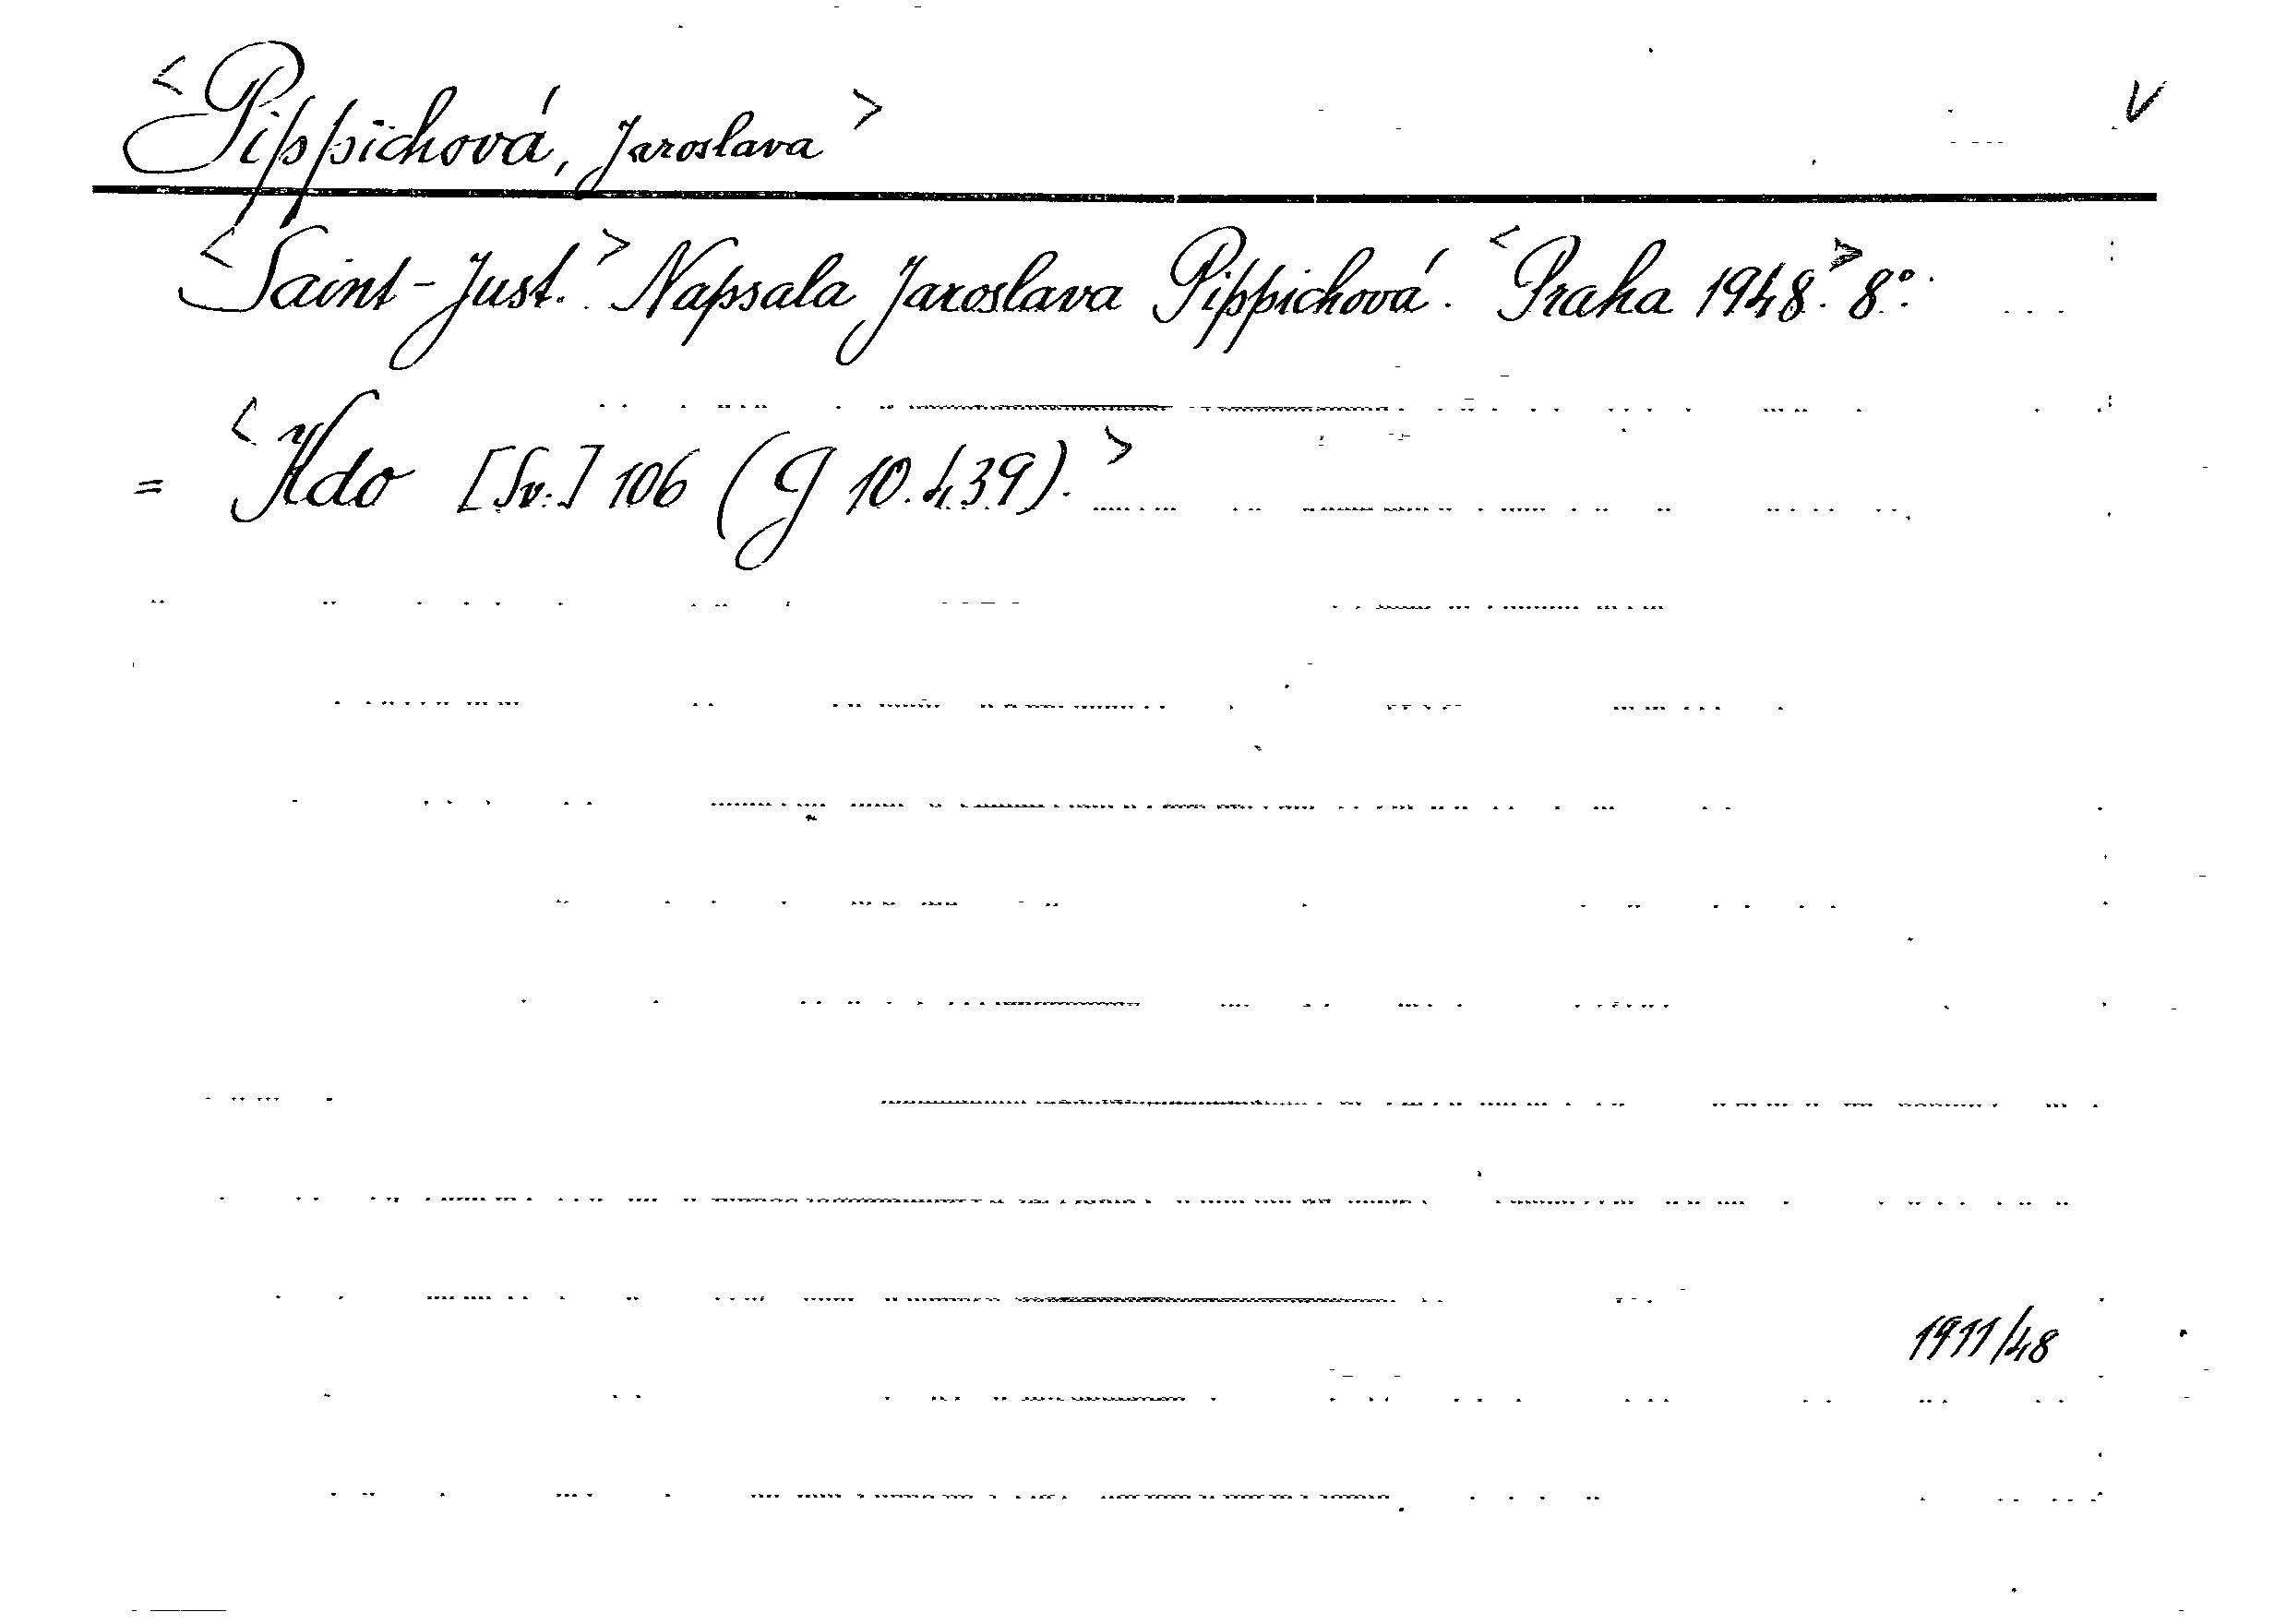 <Pippichová, Jaroslava> V
<Saint-Just.> Napsala Jaroslava Pippichová. <Praha 1948.> 8°.
= <Kdo [Sv.] 106 (G 10.439).>
1911/48